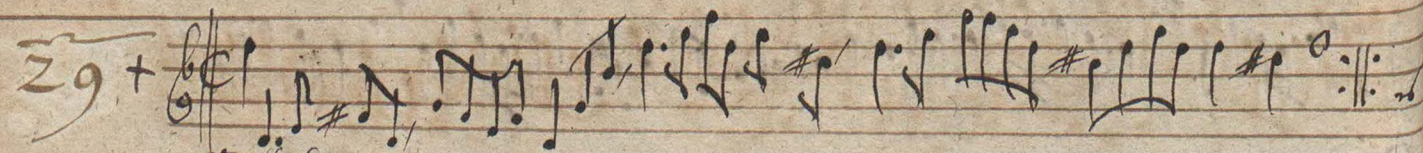 29 +